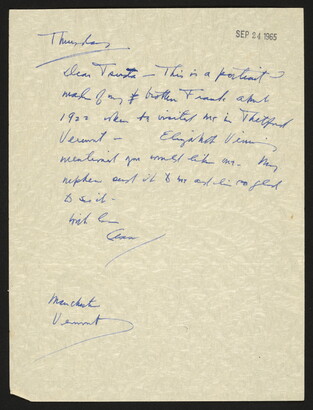 SEP 24 1965
Thursday
Dear — This is a portrait I
made of my brother Frank about
1922 when he visited me in Thetford
Vermont — Elizabeth
mentioned you would like one. My
nephew sent it to me and I'm so glad
to do it —
with love
Manchester
Vermont